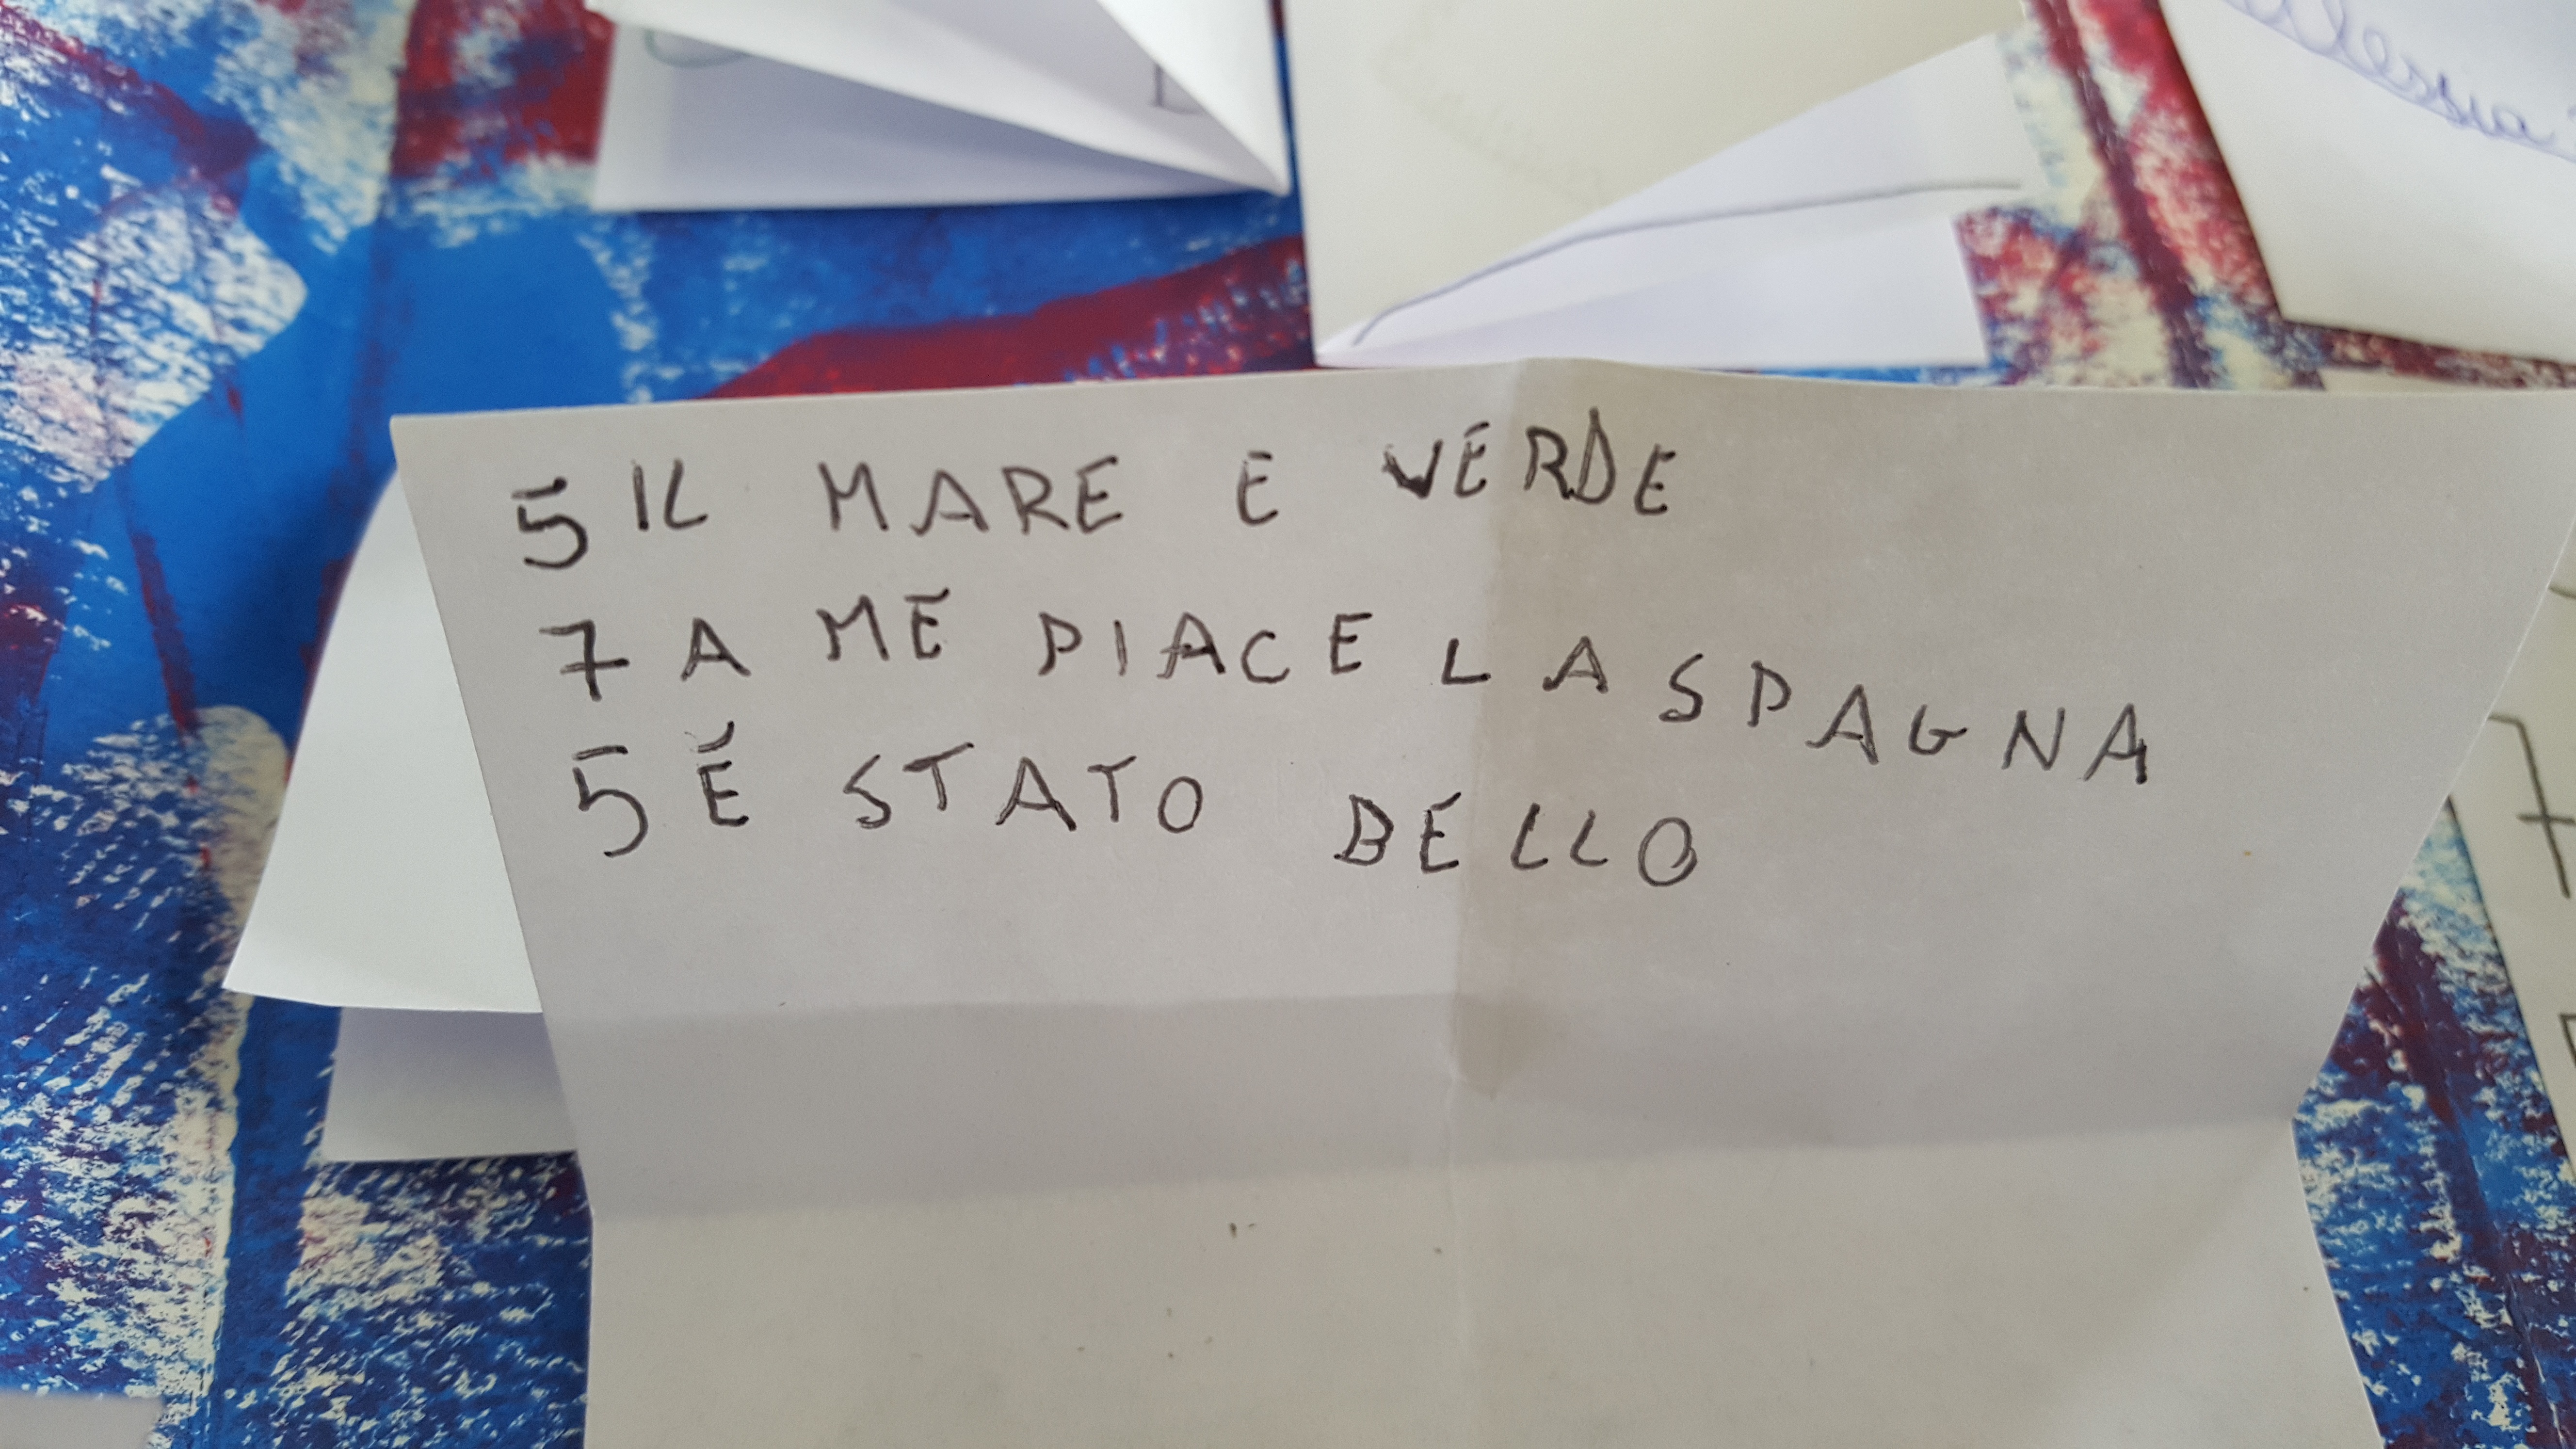 5 IL MARE E VERDE
7 A ME PIACE LA SPAGNA
5 É STATO BELLO
7